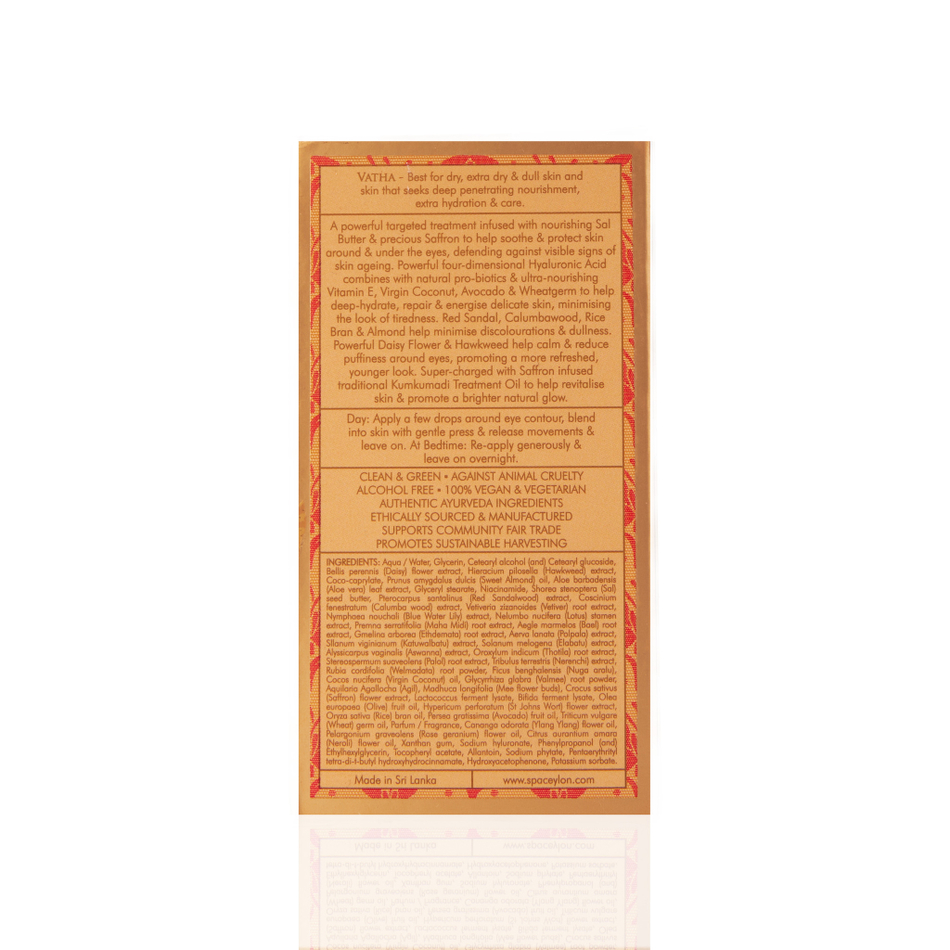 VATHA - Best for dry, extra dry & dull skin and
skin that seeks deep penetrating nourishment,
extra hydration & care.
A powerful targeted treatment infused with nourishing Sal
Butter & precious Saffron to help soothe & protect skin
around & under the eyes, defending against visible signs of
skin ageing. Powerful four-dimensional Hyaluronic Acid
combines with natural pro-biotics & ultra-nourishing
Vitamin E, Virgin Coconut, Avocado & Wheatgerm to help
deep-hydrate, repair & energise delicate skin, minimising
the look of tiredness. Red Sandal, Calumbawood, Rice
Bran & Almond help minimise discolourations & dullness.
Powerful Daisy Flower & Hawkweed help calm & reduce
puffiness around eyes, promoting a more refreshed,
younger look. Super-charged with Saffron infused
traditional Kumkumadi Treatment Oil to help revitalise
skin & promote a brighter natural glow.
Day: Apply a few drops around eye contour, blend
into skin with gentle press & release movements &
leave on. At Bedtime: Re-apply generously &
leave on overnight.
CLEAN & GREEN • AGAINST ANIMAL CRUELTY
ALCOHOL FREE • 100% VEGAN & VEGETARIAN
AUTHENTIC AYURVEDA INGREDIENTS
ETHICALLY SOURCED & MANUFACTURED
SUPPORTS COMMUNITY FAIR TRADE
PROMOTES SUSTAINABLE HARVESTING
INGREDIENTS: Aqua / Water, Glycerin, Cetearyl alcohol (and) Cetearyl glucoside,
Bellis perennis (Daisy) flower extract, Hieracium pilosella (Hawkweed) extract,
Coco-caprylate, Prunus amygdalus dulcis (Sweet Almond) oil, Aloe barbadensis
(Aloe vera) leaf extract, Glyceryl stearate, Niacinamide, Shorea stenoptera (Sal)
seed butter, Pterocarpus santalinus (Red Sandalwood) extract, Coscinium
fenestratum (Calumba wood) extract, Vetiveria zizanoides (Vetiver) root extract,
Nymphaea nouchali (Blue Water Lily) extract, Nelumbo nucifera (Lotus) stamen
extract, Premna serratifolia (Maha Midi) root extract, Aegle marmelos (Bael) root
extract, Gmelina arborea (Ethdemata) root extract, Aerva lanata (Polpala) extract,
SIlanum viginianum (Katuwalbatu) extract, Solanum melogena (Elabatu) extract,
Alyssicarpus vaginalis (Aswanna) extract, Oroxylum indicum (Thotila) root extract,
Stereospermum suaveolens (Palol) root extract, Tribulus terrestris (Nerenchi) extract,
Rubia cordifolia (Welmadata) root powder, Ficus benghalensis (Nuga aralu),
Cocos nucifera (Virgin Coconut) oil, Glycyrrhiza glabra (Valmee) root powder,
Aquilaria Agallocha (Agil), Madhuca longifolia (Mee flower buds), Crocus sativus
(Saffron) flower extract, Lactococcus ferment lysate, Bifida ferment lysate, Olea
europaea (Olive) fruit oil, Hypericum perforatum (St Johns Wort) flower extract,
Oryza sativa (Rice) bran oil, Persea gratissima (Avocado) fruit oil, Triticum vulgare
(Wheat) germ oil, Parfum / Fragrance, Cananga odorata (Ylang Ylang) flower oil,
Pelargonium graveolens (Rose geranium) flower oil, Citrus aurantium amara
(Nerali) flower oil, Xanthan gum, Sodium hyluronate, Phenylpropanol (and)
Ethylhexylglycerin, Tocopheryl acetate, Allantoin, Sodium phytate, Pentaerythrityl
tetra-di-t-butyl hydroxyhydrocinnamate, Hydroxyacetophenone, Potassium sorbate.
Made in Sri Lanka
www.spaceylon.com